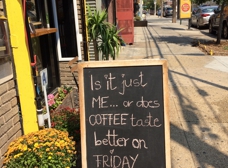 Is it just
ME... or does
COFFEE taste
better on
FRIDAY